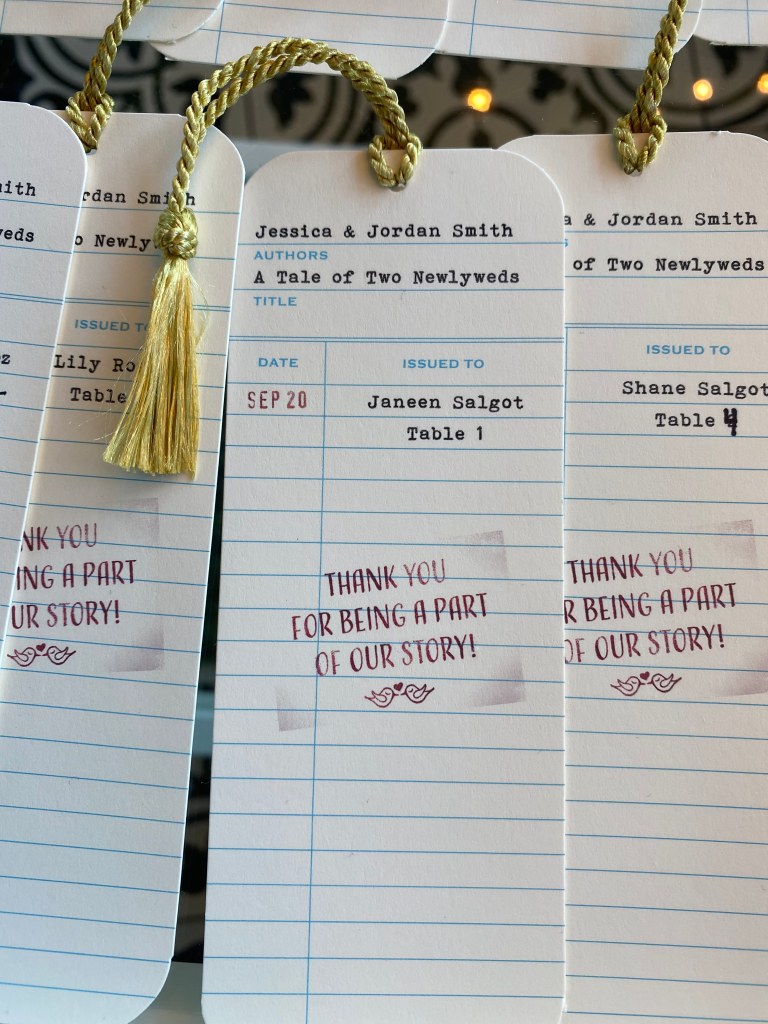 Jessica & Jordan Smith
AUTHORS
A Tale of Two Newlyweds
TITLE
DATE
ISSUED TO
SEP 20
Janeen Salgot
Table 1
THANK YOU
FOR BEING A PART
OF OUR STORY!
Smith
ISSUED
Lily
Table
YOU
A PART
STORY!
& Jordan Smith
of Two Newlyweds
ISSUED TO
Shane Salgot
Table 4
THANK YOU
BEING A PART
OF OUR STORY!